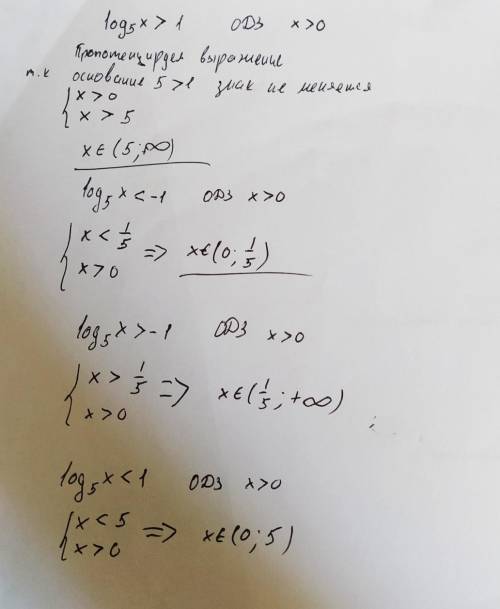 log₅x > 1 ОДЗ x>0
Пропотенцируем выражение
т.к основание 5>1 знак не меняется
{ x>0
x > 5
x∈(5;+∞)
log₅x < -1 ОДЗ x>0
{ x < 1/5
x>0 => x∈(0; 1/5)
log₅x > -1 ОДЗ x>0
{ x > 1/5
x>0 => x∈(1/5; +∞)
log₅x < 1 ОДЗ x>0
{ x < 5
x>0 => x∈(0; 5)